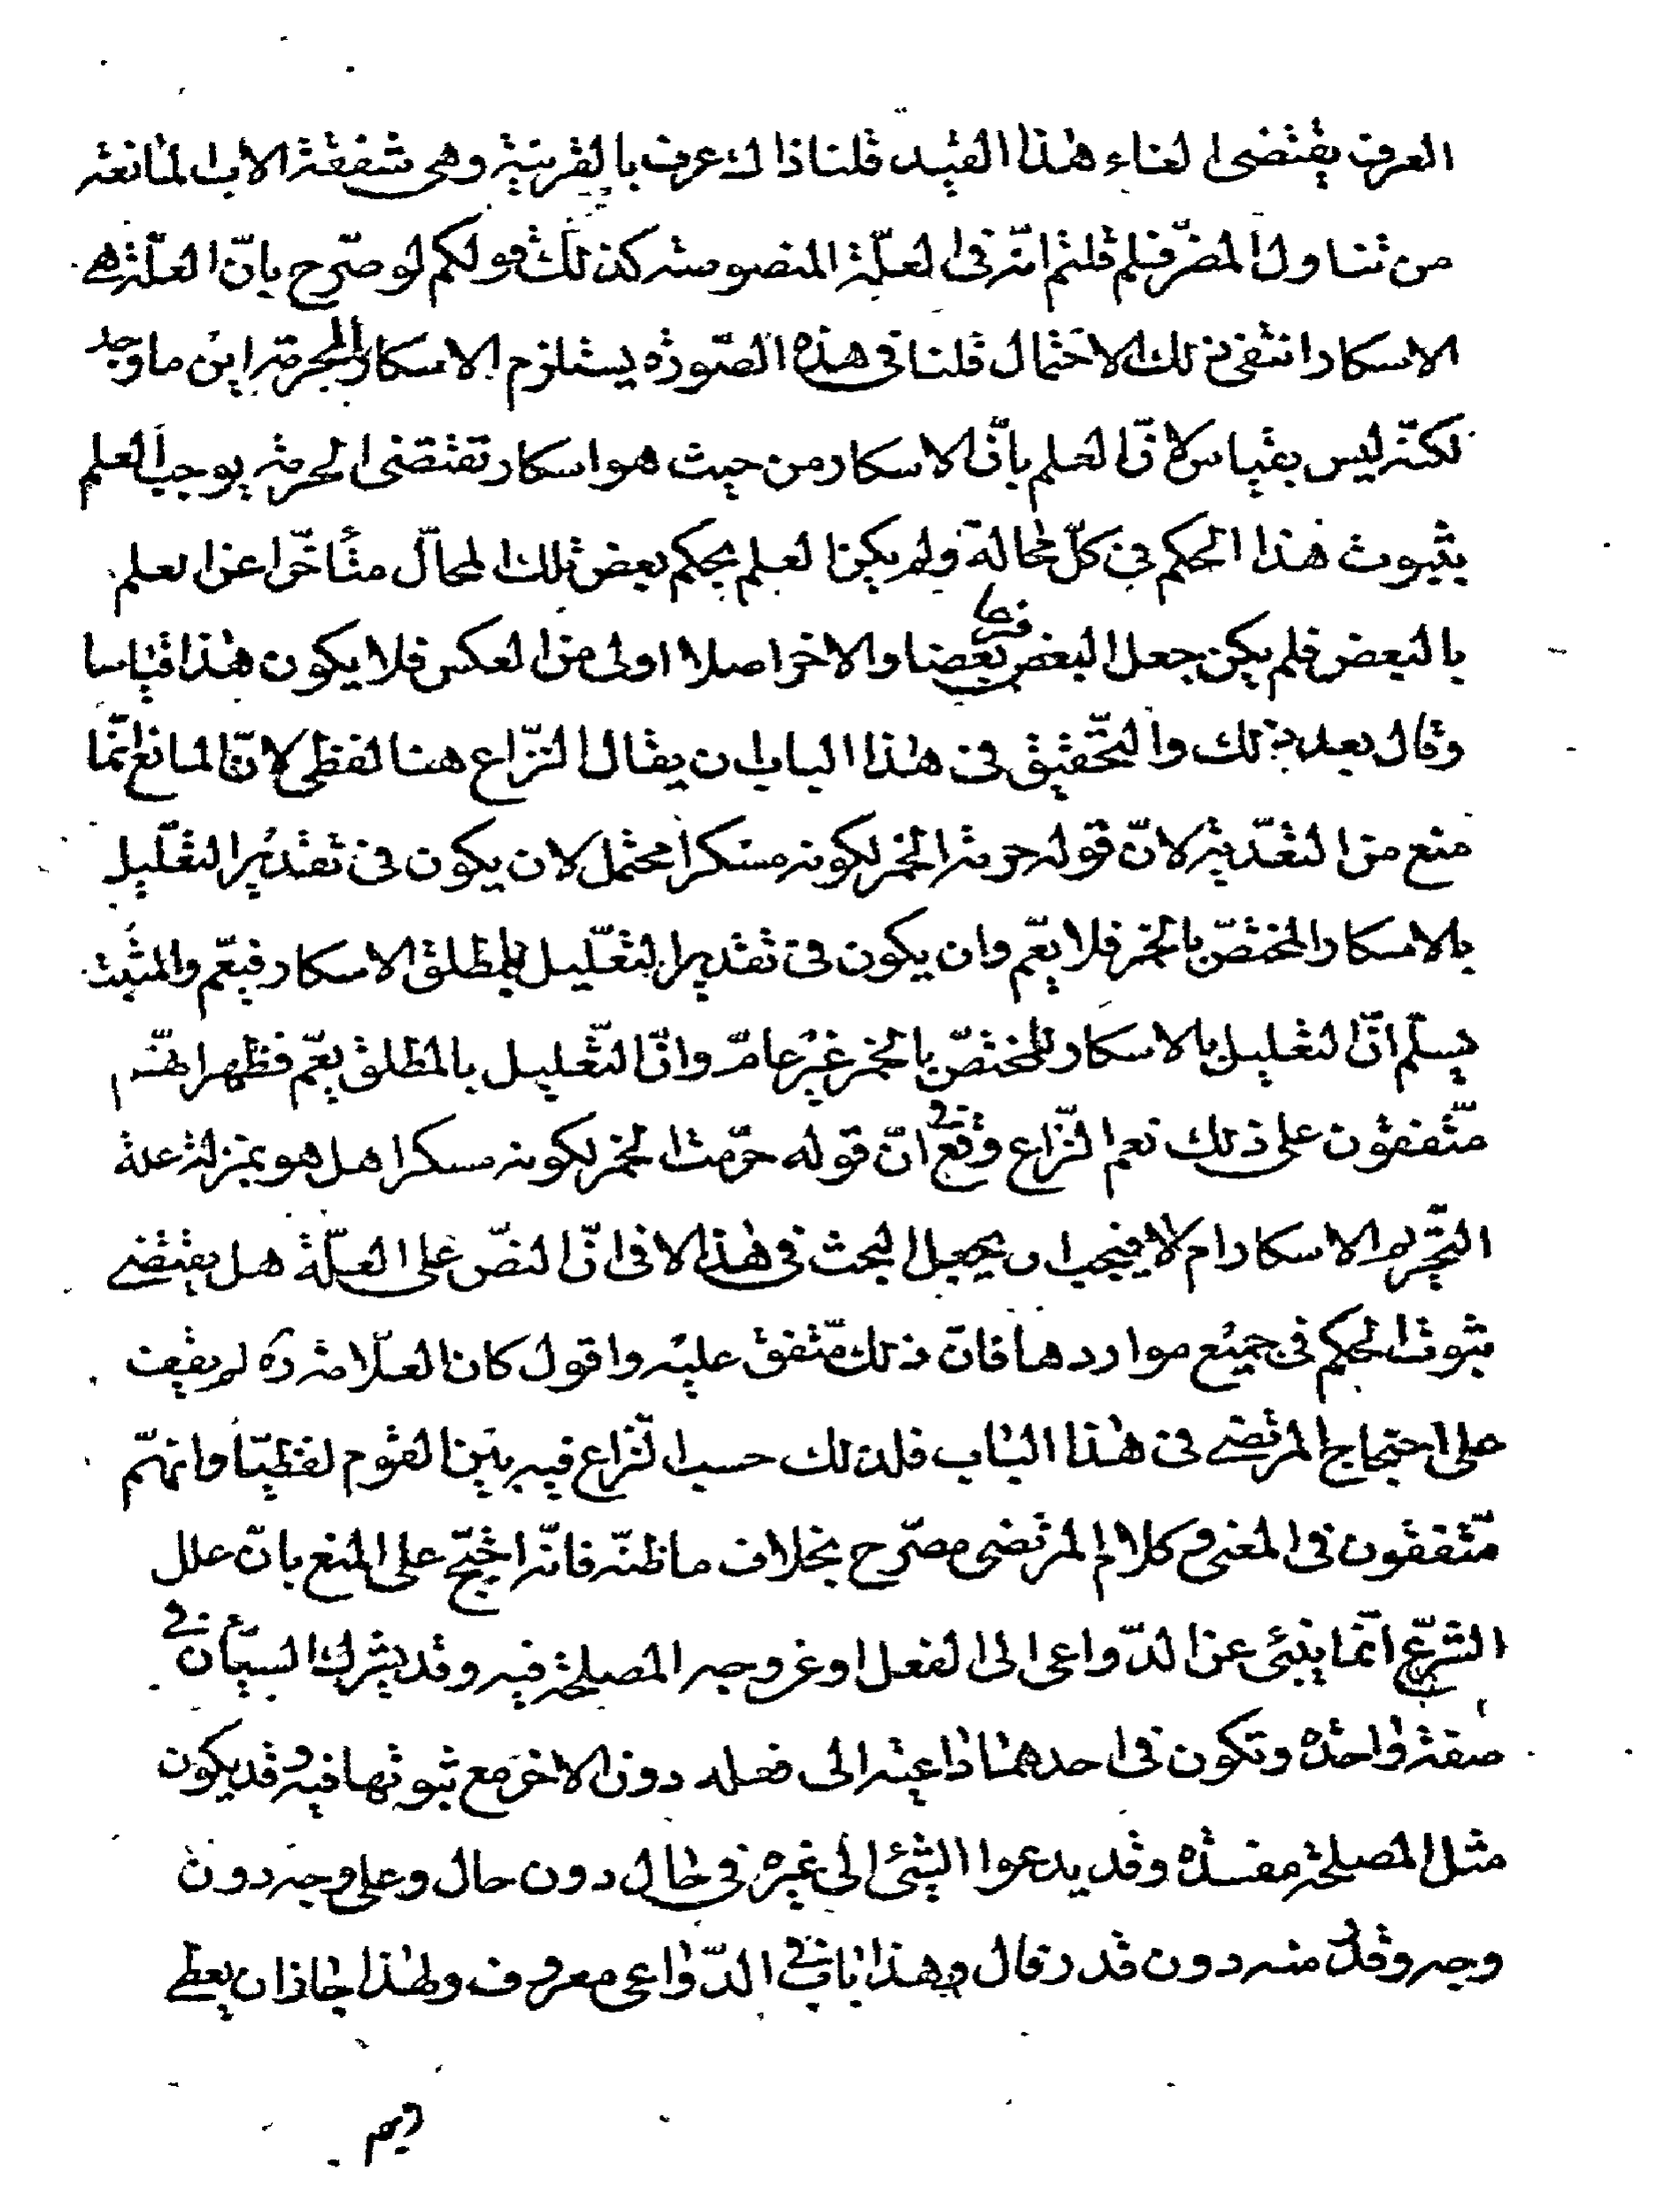 العرف يقتضى الغاء هذا القيد قلنا ذاك عرف بالقرينة وهى شفقة الاب المانعة
من تناول المضرّ فلم قلتم انّه فى العلّة المنصوصة كذلك قولكم لو صرّح بانّ العلّة هى
الاسكار انتفى ذلك الاحتمال قلنا فى هذه الصّورة يستلزم الاسكار الحرمة اين ما وجد
لكنّه ليس بقياس لانّ العلم بانّ الاسكار من حيث هو اسكار تقتضى الحرمة يوجب العلم
بثبوت هذا الحكم فى كلّ محاله ولم يكن العلم بحكم بعض تلك المحالّ متأخّرا عن العلم
بالبعض فلم يكن جعل البعض فرعا بعضا والاخر اصلا اولى من العكس فلا يكون هذا قياسا
وقال بعد ذلك والتّحقيق فى هذا الباب ان يقال النّزاع هنا لفظى لانّ المانع انّما
منع من التعّدية لانّ قوله حرمة الخمر لكونه مسكرا محتمل لان يكون فى تقدير التعّليل
بالاسكار المختصّ بالخمر فلا يعّم وان يكون فى تقدير التعّليل بمطلق الاسكار فيعّم والمثبت
يسلّم انّ التعليل بالاسكار المختصّ بالخمر غير عامّ وانّ التّعليل بالمطلق يعّم فظهر انهّم
متّفقون على ذلك نعم النّزاع وقع فى انّ قوله حرّمت الخمر لكونه مسكرا هل هو بمنزلة علة
التّحريم الاسكار ام لا فيجب ان يجعل البحث فى هذا لا فى انّ النصّ على العلّة هل يقتضى
ثبوت الحكم فى جميع مواردها فانّ ذلك متّفق عليه واقول كان العلّامة ره لم يقف
على احتجاج المرتضى فى هذا الباب فلذلك حسب النّزاع فيه بين القوم لفظيّا وانهّم
متّفقون فى المعنى وكلام المرتضى مصرّح بخلاف ما ظنّه فانّه احتّج على المنع بانّ علل
الشّرع انّما ينبئ عن الدّواعى الى الفعل او عن وجه المصلحة فيه وقد يشترك الشيئان فى
صفة واحدة وتكون فى احدهما داعية الى فعله دون الاخر مع ثبوتها فيه وقد يكون
مثل المصلحة مفسدة وقد يدعوا الشئ الى غيره فى حال دون حال وعلى وجه دون
وجه وقدر منه دون قدر قال وهذا باب فى الدّواعى معروف ولهذا جاز ان يعطى